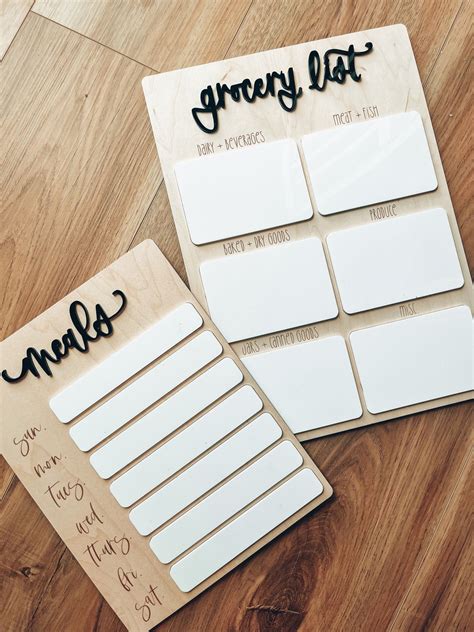 grocery list
DAIRY + BEVERAGES
MEAT + FISH
BAKED + DRY GOODS
PRODUCE
JARS + CANNED GOODS
MISC
meals
sun.
mon.
tues.
wed.
thurs.
fri.
sat.